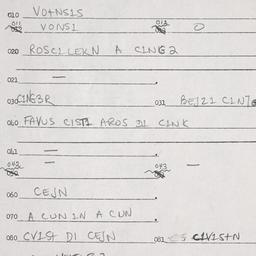 010 VOTNSIS
011 VONSI 012 O
020 ROSCI LEKN A CING2
021 —
030 CINGER 031 BEJZI CIN
040 FAVUS CISTI AROS DI CINK
041 =
042 — 043 —
060 CEJN
070 A CUN IN A CUN
080 CVIST DI CEJN 081 CIVISTN